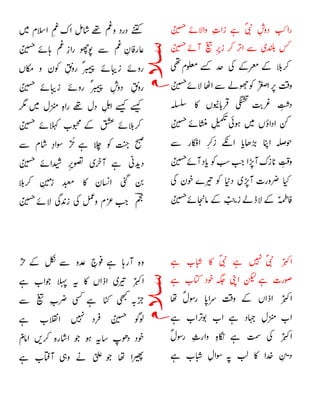 سلام
راکبِ دوشِ نبیؐ ہے زات والائے حسینؑ
کس بلندی سے اتر کر زیر تیغ آئے حسینؑ
کربلا کے معرکے کی حد کسے معلوم تھی
وقت پر اصغرؑ کو جھولے سے اٹھا لائے حسینؑ
دشتِ غربت تشنگی قربانیوں کا سلسلہ
کن اداؤں میں ہوئی تکمیلِ منشائے حسینؑ
حوصلہ اپنا بڑھایا افکار سے
وقت نازک آپڑا جب سب کو یاد آئے حسینؑ
کیا ضرورت آپڑی دنیا کو تیرے خون کی
فاطمہؑ کے لاڈلے زینبؑ کے مانجائے حسینؑ
کتنے درد و غم تھے شامل اک غمِ اسلام میں
عارفانِ غم سے پوچھو رازِ غم ہائے حسینؑ
روئے زیبائے پیمبرؐ رونقِ کون و مکاں
رونقِ دوشِ پیمبرؐ روئے زیبائے حسینؑ
کیسے کیسے اہلِ دل تھے راہِ منزل میں مگر
کربلائے عشق کے محبوب کہلائے حسینؑ
صبح جنت کو چلا ہے حرؑ سوادِ شام سے
دیدنی ہے آخری تصویر شیدائے حسینؑ
بن گئی انسان کا معبد زمینِ کربلا
نجمؔ جب عزم و عمل کی زندگی لائے حسینؑ
سلام
اکبرؑ ہے نبیؐ نہیں نبیؐ کا شباب ہے
صورت ہے لیکن اپنی جگہ خود کتاب ہے
اکبرؑ اذاں کے وقت سراپا رسولؐ تھا
اب منزلِ جہاد ہے اب بوتراب ہے
اکبرؑ کی سمت ہے نگاہِ وارثِ رسولؐ
دینِ خدا کا لب پہ سوالِ شباب ہے
وہ آرہا ہے فوج عدو سے نکل کے حرؑ
اکبرؑ تیری اذاں کا یہ پہلا جواب ہے
کبھی کٹا ہے کسی ضرب تیغ سے
لوگو حسینؑ فرد نہیں انقلاب ہے
خود دھوپ سایہ ہو جو اشارہ کریں امامؑ
پھیرا تھا جو علیؑ نے وہی آفتاب ہے